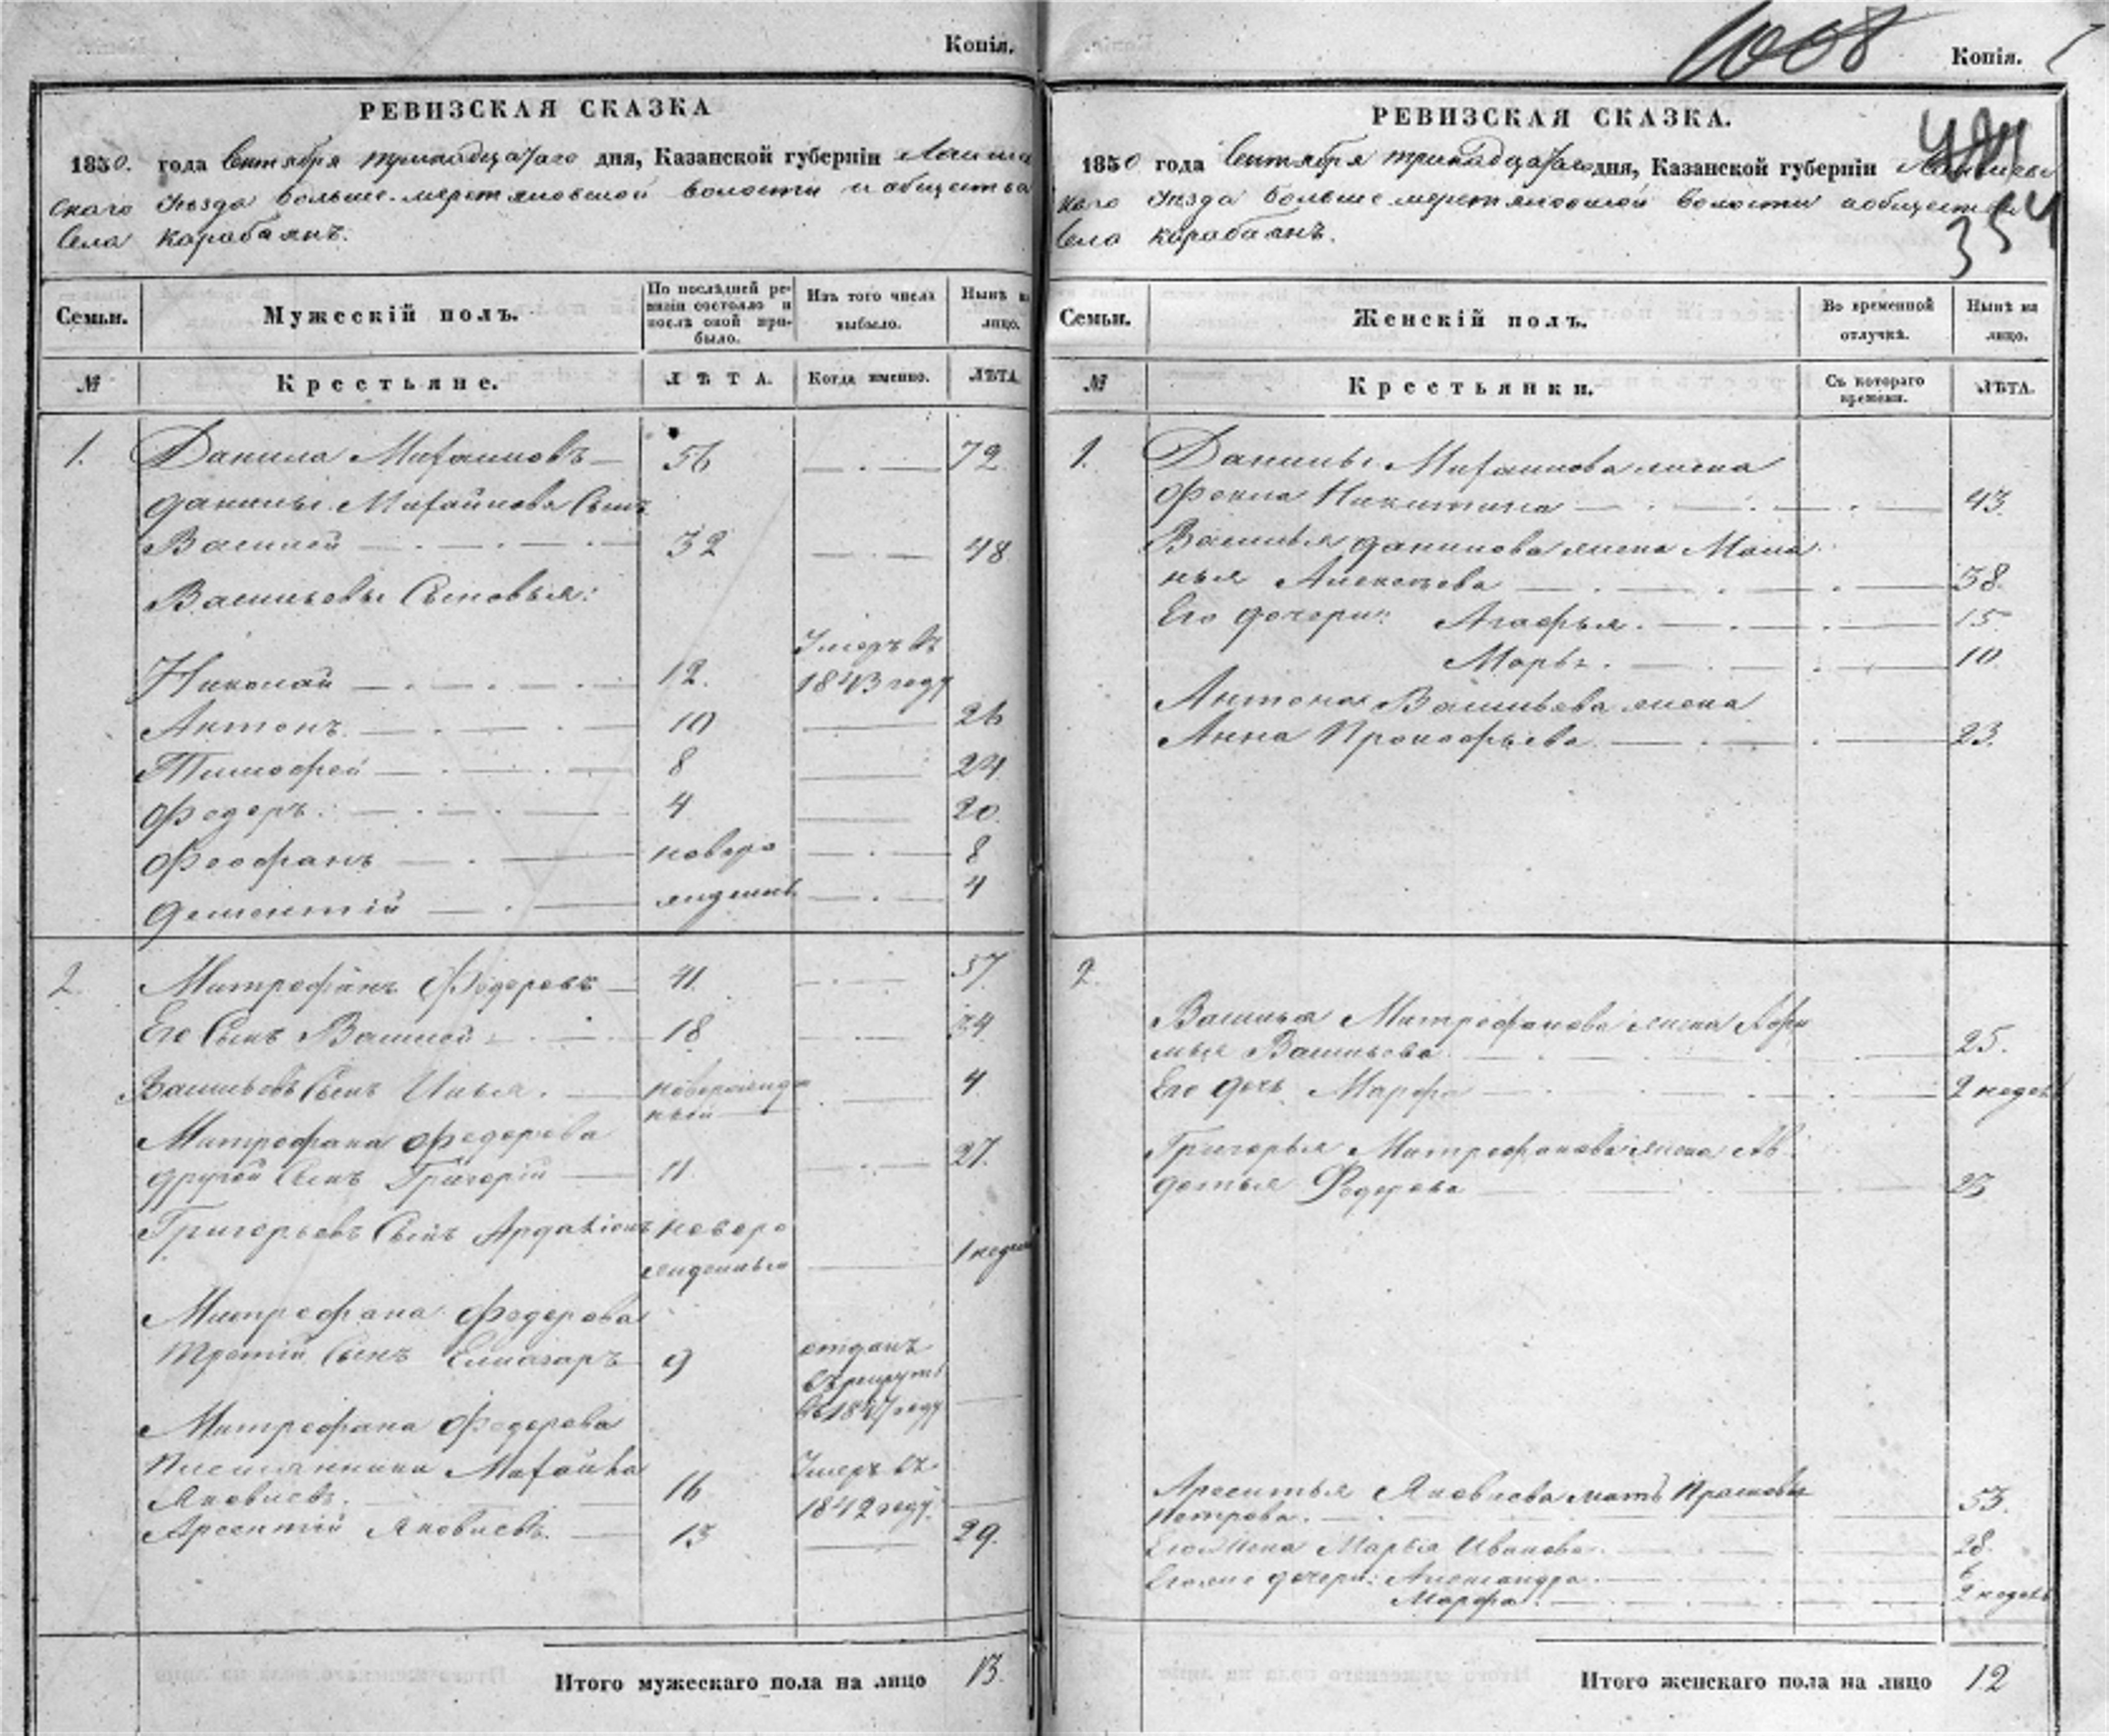 Копія.
РЕВИЗСКАЯ СКАЗКА
1850. года Сентября тринадцатаго дня, Казанской губерніи Лаише
скаго уѣзда Больше-меретяковской волости и общества
села Карабаянъ.
Семьи.
Мужескій полъ.
По послѣдней ре-
визіи состояло и
послѣ оной при-
было.
Изъ того числа
выбыло.
Нынѣ на
лицо.
№
Крестьяне.
ЛѢТА.
Когда именно.
ЛѢТА.
1. Данила Михаиловъ 56 72
Данилы Михайлова Сынъ
Василей 32 48
Васильевы Сыновья:
Умеръ въ
Николай 12. 1843 году
Антонъ 10 26
Тимофей 8 24
Федоръ. 4 20.
Феофанъ новоро 8
Дементій жденные 4
2. Митрофанъ Федоровъ 41. 57
Его Сынъ Василей 18 34
Васильевъ Сынъ Илья. новорожде 4
нный
Митрофана Федорова
другой Сынъ Григорій 11. 27.
Григорьевъ Сынъ Ардаліонъ новоро
жденный 1 недели
Митрофана Федорова
третій Сынъ Елиазаръ 9 отданъ
въ рекруты
въ 1847 году
Митрофана Федорова
племянники Михайла
Яковлевъ. 16 Умеръ въ
1842 году.
Арсентій Яковлевъ. 13 29.
Итого мужескаго пола на лицо 13.
1008
Копія.
РЕВИЗСКАЯ СКАЗКА.
354
1850 года Сентября тринадцатаго дня, Казанской губерніи Лаишевс
каго уѣзда Больше меретяковской волости и общества
села Карабаянъ.
Семьи.
Женскій полъ.
Во временной
отлучкѣ.
Нынѣ на
лицо.
№
Крестьянки.
Съ котораго
времени.
ЛѢТА.
1. Данилы Михаилова жена
Фекла Никитина 43.
Василья Данилова жена Мала
нья Алексѣева 38.
Его дочери: Агафья. 15
Марья. 10
Антона Васильева жена
Анна Прокофьева 23.
2.
Василья Митрофанова жена
Васильева 25.
Его дочь Марфа 2 недель
Григорья Митрофанова жена Ав
дотья Федорова 23
Арсентья Яковлева мать Прасковья
Петрова. 53.
Его жена Марья Иванова. 28.
Его же дочери: Александра. 6
Марфа. 2 недель
Итого женскаго пола на лицо 12